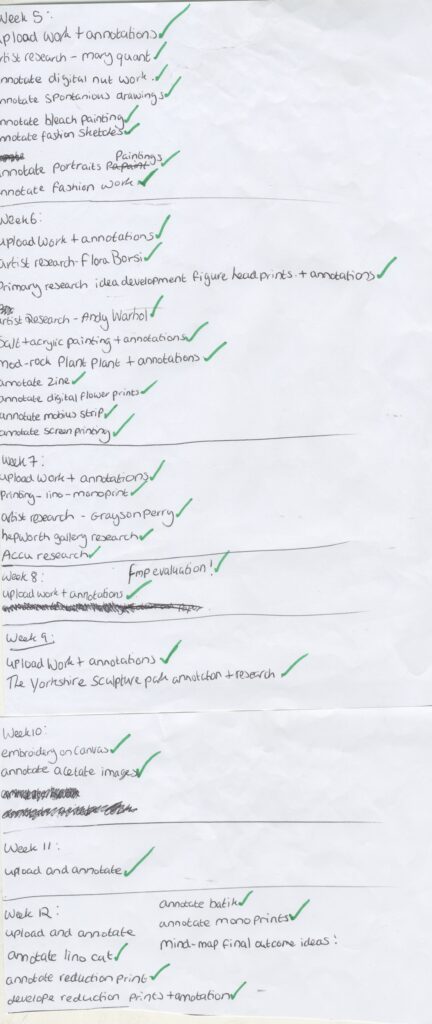 Week 5:
upload work + annotations
artist research - mary quant
annotate digital nut work.
annotate spontanious drawings
annotate bleach painting
annotate fashion sketches
Paintings
annotate portraits
annotate fashion work
Week 6:
upload work + annotations
artist research - Flora Borsi
Primary research idea development figure head prints + annotations
artist Research - Andy Warhol
Salt + acrylic painting + annotations
mod-rock Plant Plant + annotations
annotate Zine
annotate digital flower prints
annotate mobius strip
annotate screen printing
Week 7:
upload work + annotations
Printing - lino - monoprint
artist research - Grayson Perry
hepworth gallery research
Accu research
Week 8:
fmp evaluation!
upload work + annotations
Week 9:
upload work + annotations
The Yorkshire Sculpture park annotation + research
Week 10:
embroidery on canvas
annotate acetate images
Week 11:
upload and annotate
Week 12:
upload and annotate
annotate lino cut
annotate reduction print
develope reduction prints + annotation
annotate batik
annotate mono prints
mind-map final outcome ideas: